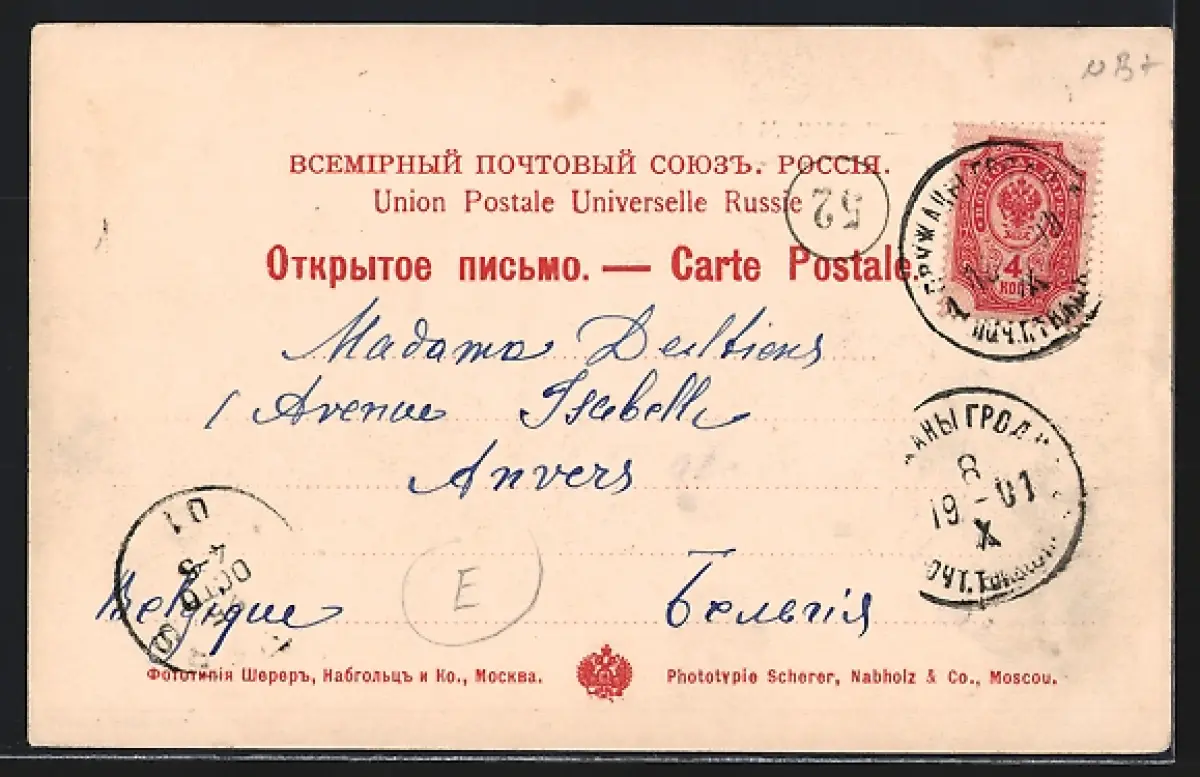 ВСЕМІРНЫЙ ПОЧТОВЫЙ СОЮЗЪ. РОССІЯ.
Union Postale Universelle Russie
52
Открытое письмо. — Carte Postale.
4
КОП
Madame
1 Avenue Isabelle
Anvers
АНЫ ГРОДН
8
19 - 01
X
01
E
Belgique
Бельгія
Фототипія Шереръ, Набгольцъ и Ко., Москва.
Phototypie Scherer, Nabholz & Co., Moscou.